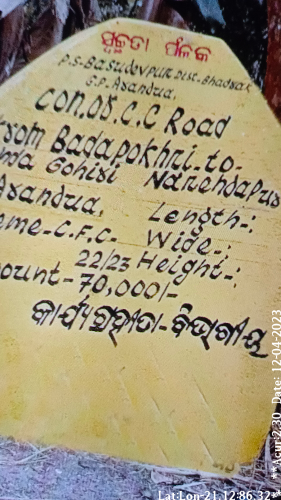 ସ୍ୱଚ୍ଛତା ଫଳକ
P.S-Basudevpur Dist-Bhadrak
G.P-Asandua,
con.of.C.C Road
from Badapokhri-to-
Gohisi Narendapur
Asandua, Length-:
eme-C.F.C- Wide-:
22/23 Height-:
ount-70,000/-
କାର୍ଯ୍ୟକାରୀତା-ବିଭାଗୀୟ
Date: 12-04-2023
Lat:Lon-21.12:86.32